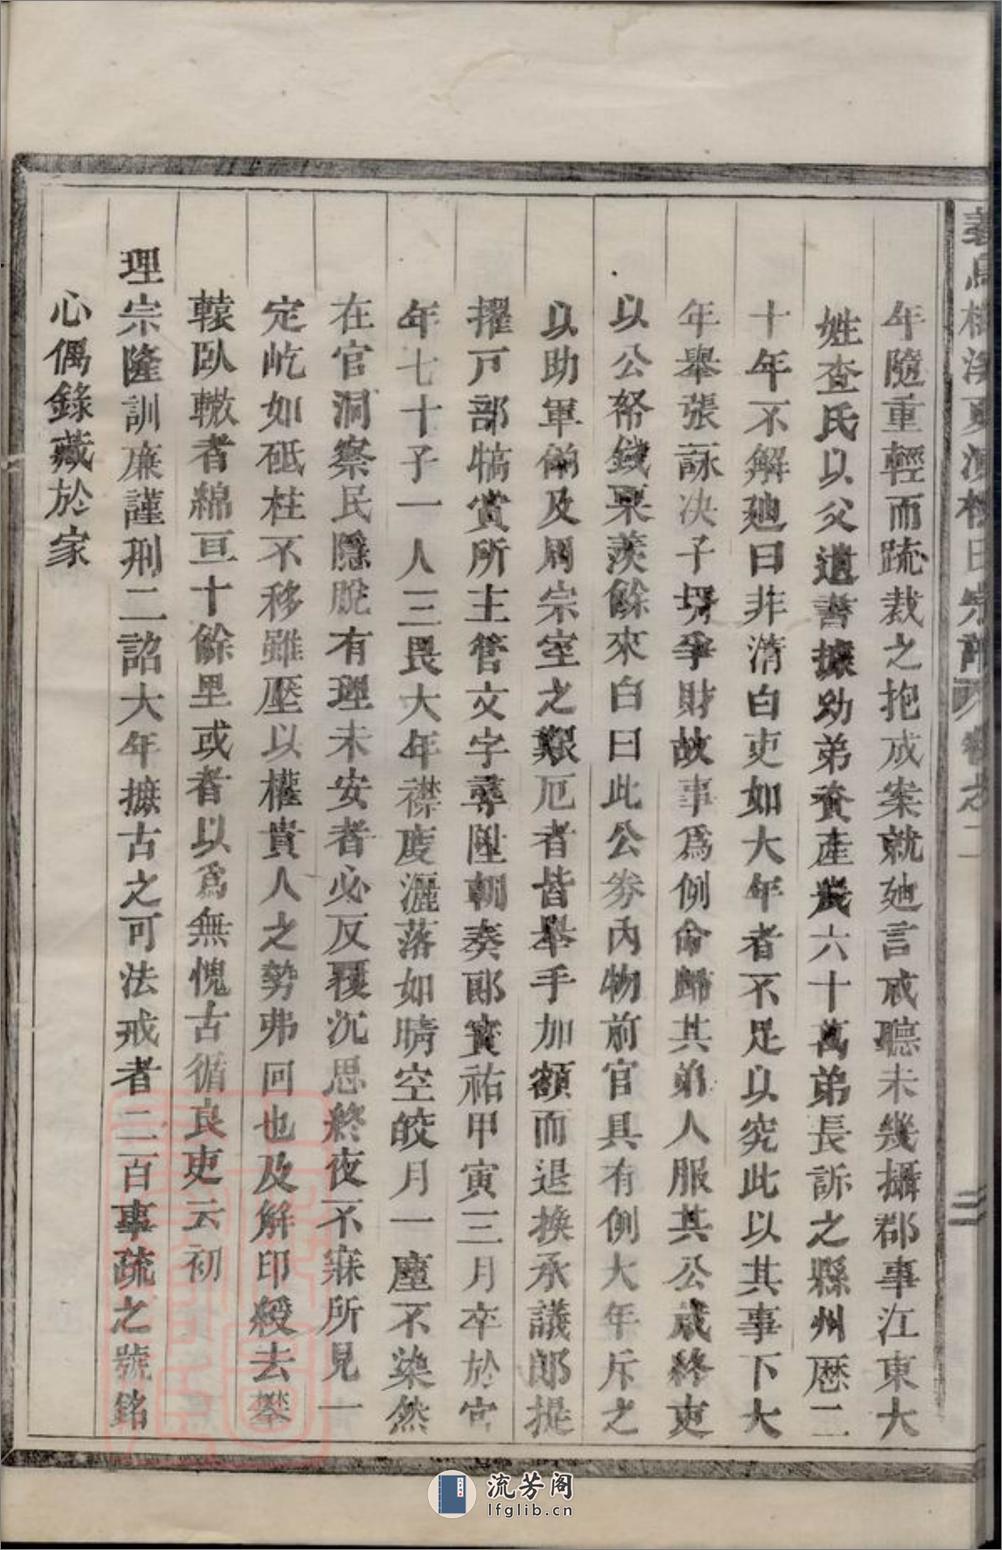 年隨重輕而疏裁之抱成案就廸言戒聽未幾攝郡事江東大
姓查氏以父遺書據幼弟資產歲六十萬弟長訴之縣州歷二
十年不解廸曰非清白吏如大年者不足以究此以其事下大
年舉張詠决子壻爭財故事爲例命歸其弟人服其公歲終吏
以公帑錢粟羨餘來白曰此公券內物前官具有例大年斥之
以助軍餉及周宗室之艱厄者皆舉手加額而退換承議郎提
擢戸部犒賞所主管文字尋陞朝奏郎寳祐甲寅三月卒於官
年七十子一人三畏大年襟度灑落如晴空皎月一塵不染然
在官洞察民隱脫有理未安者必反覆沉思終夜不寐所見一
定屹如砥柱不移雖壓以權貴人之勢弗回也及解印綬去攀
轅臥轍者綿亘十餘里或者以爲無愧古循良吏云初
理宗隆訓廉謹刑二詔大年摭古之可法戒者二百事疏之號銘
心偶錄藏於家
義烏 宗譜 卷之二
二
流芳阁
lfglib.cn